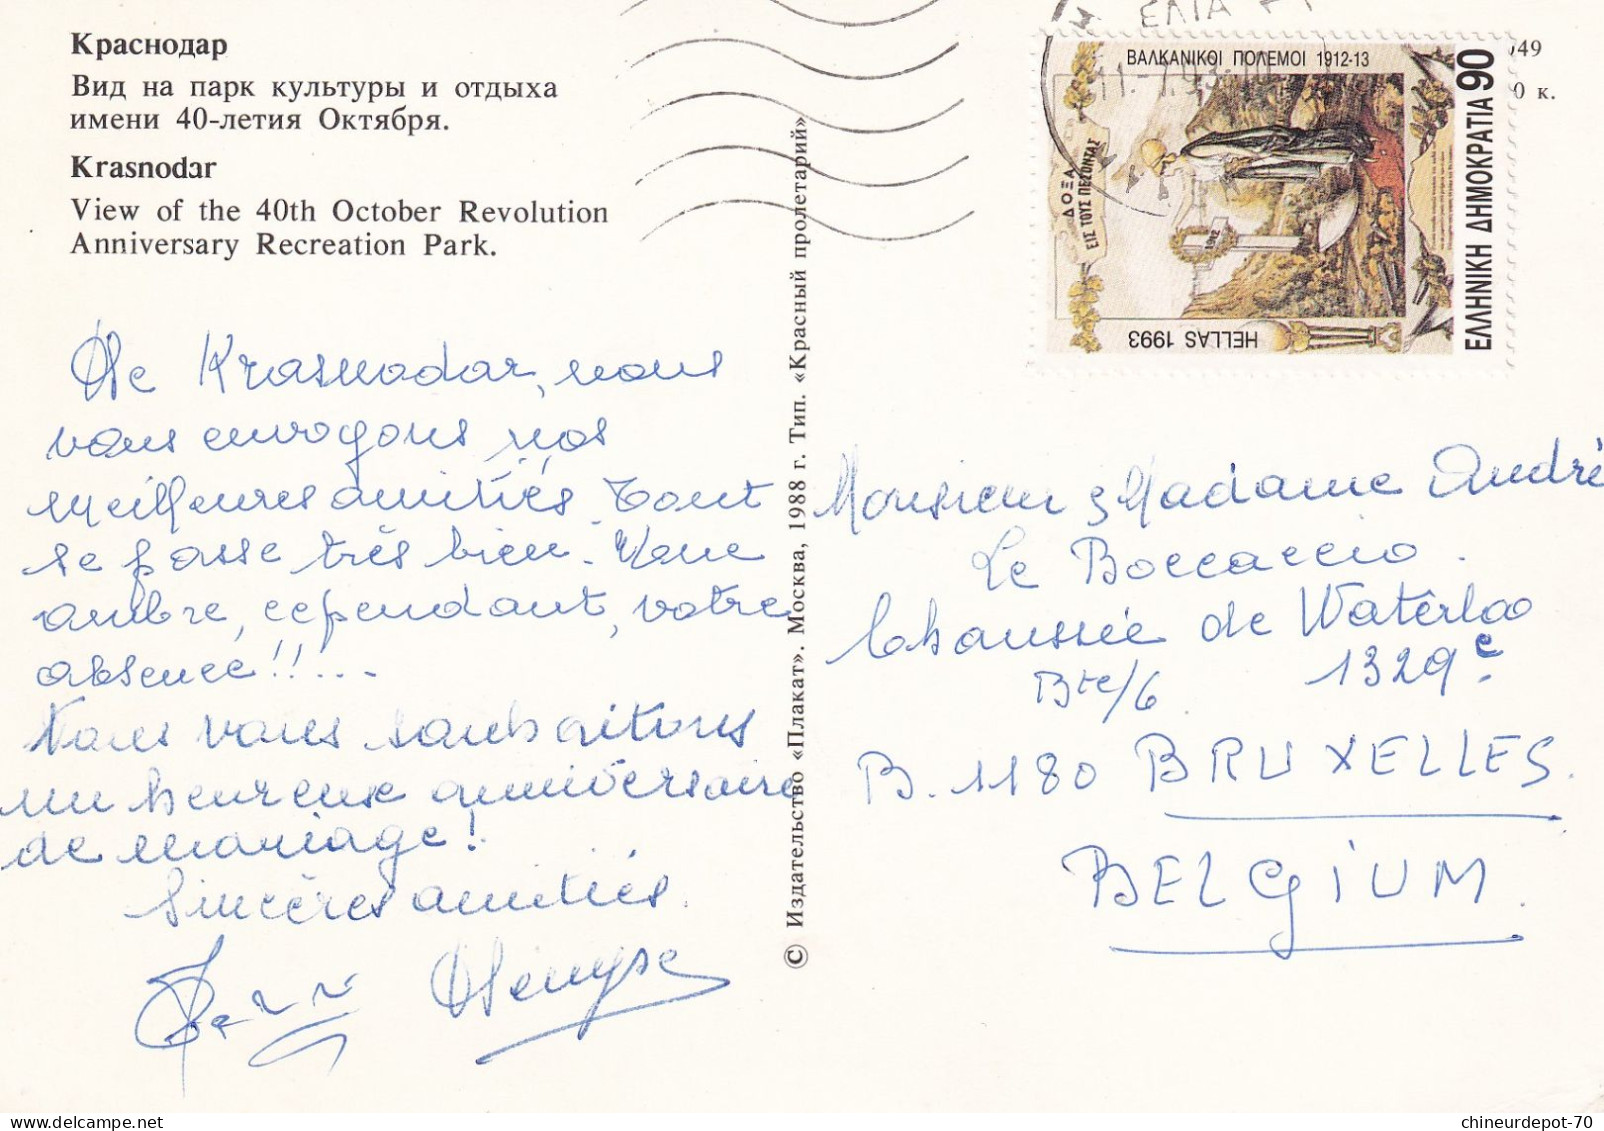 Краснодар
Вид на парк культуры и отдыха
имени 40-летия Октября.
Krasnodar
View of the 40th October Revolution
Anniversary Recreation Park.
De Krasnodar, nous
vous envoyons nos
meilleures amitiés. Tout
se passe très bien. Une
ombre, cependant, votre
absence!!...
Nous vous souhaitons
un heureux anniversaire
de mariage!
Sincères amitiés.
Denyse
© Издательство «Плакат». Москва, 1988 г. Тип. «Красный пролетарий»
ΒΑΛΚΑΝΙΚΟΙ ΠΟΛΕΜΟΙ 1912-13
ΔΟΞΑ
ΕΙΣ ΤΟΥΣ ΠΕΣΟΝΤΑΣ
1912
HELLAS 1993
ΕΛΛΗΝΙΚΗ ΔΗΜΟΚΡΑΤΙΑ 90
49
0 к.
Monsieur & Madame André
Le Boccaccio.
Chaussée de Waterloo
Bte/6 1329c
B. 1180 BRUXELLES.
BELGIUM.
chineurdepot-70